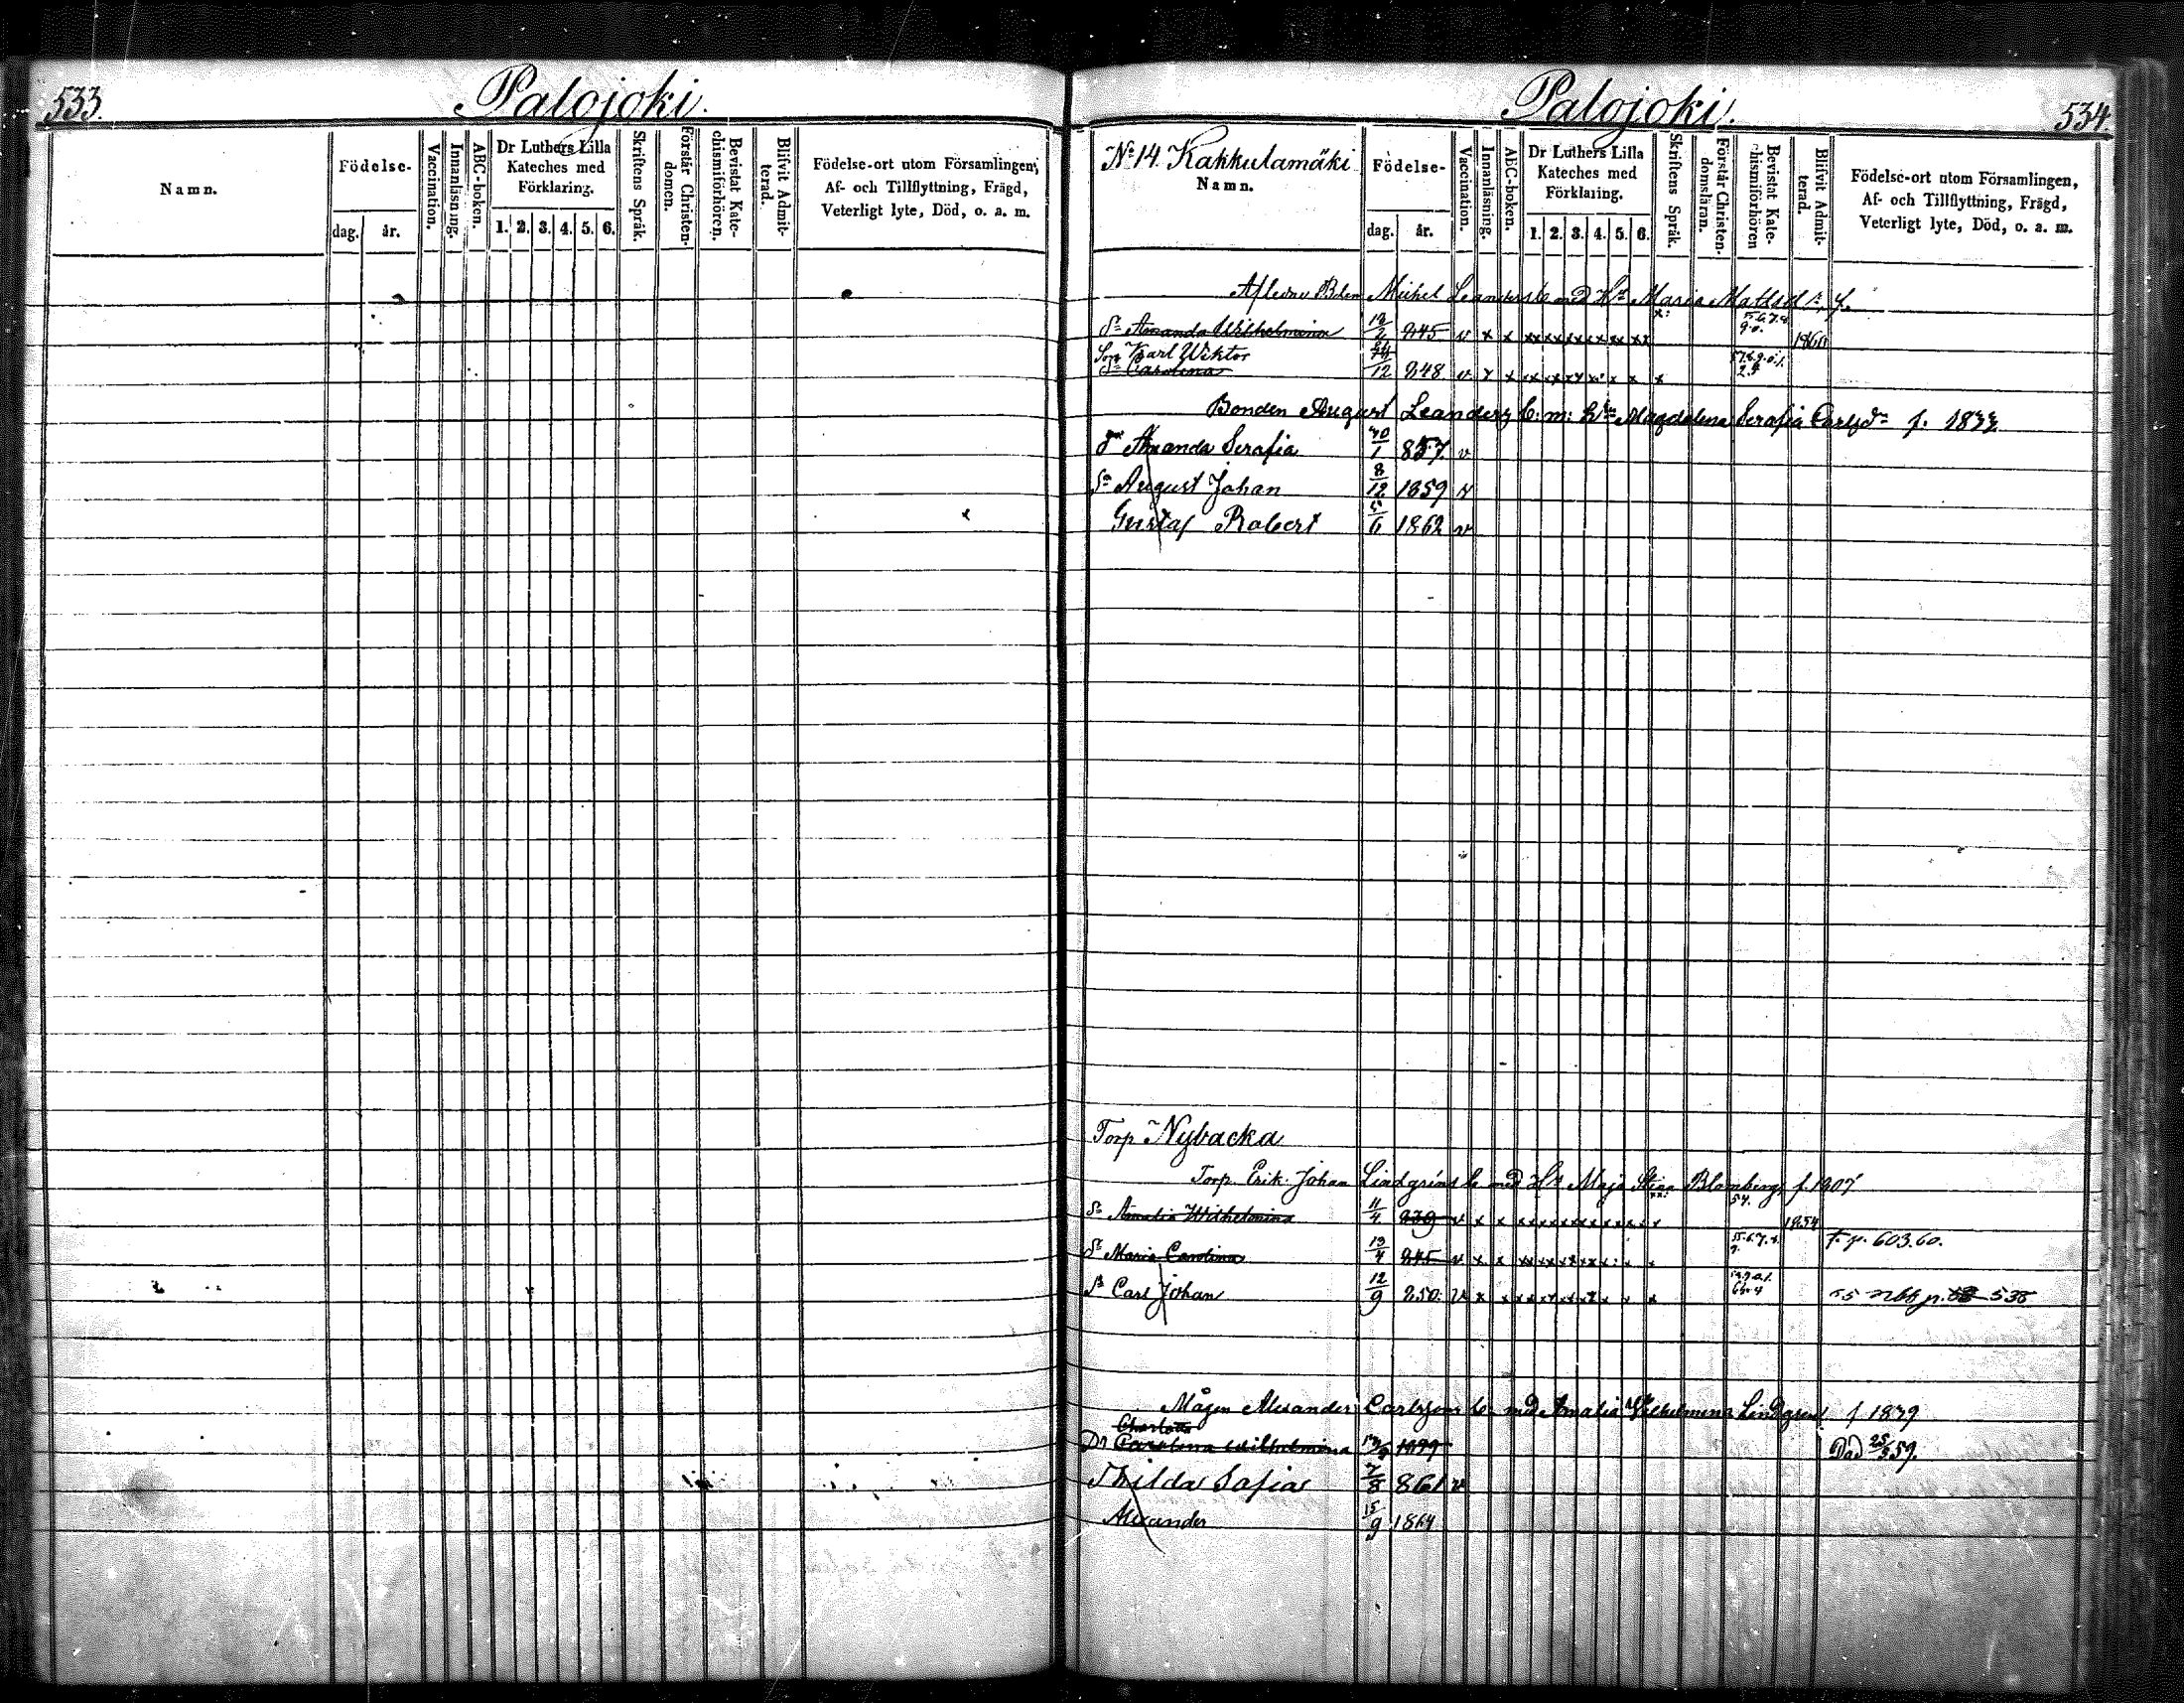 533.
Palojoki.
Namn.
Födelse-
dag.
år.
Vaccination.
Innanläsning.
ABC-boken.
Dr Luthers Lilla
Kateches med
Förklaring.
1. 2. 3. 4. 5. 6.
Skriftens Språk.
Förstår Christen-
domen.
Bevistat Kate-
chismiförhören.
Blifvit Admit-
terad.
Födelse-ort utom Församlingen,
Af- och Tillflyttning, Frägd,
Veterligt lyte, Död, o. a. m.
Palojoki.
534.
No 14. Kakkulamäki
Namn.
Födelse-
dag.
år.
Vaccination.
Innanläsning.
ABC-boken.
Dr Luthers Lilla
Kateches med
Förklaring.
1. 2. 3. 4. 5. 6.
Skriftens Språk.
Förstår Christen-
domsläran.
Bevistat Kate-
hismiförhören
Blifvit Admit-
terad.
Födelse-ort utom Församlingen,
Af- och Tillflyttning, Frägd,
Veterligt lyte, Död, o. a. m.
Michel Leanders b. med Maria Mattsd
Amanda Wilhelmina 845 v x x
Karl Wiktor
Carolina 12 848 v x x
Bonden August Leanders b: m: Magdalena Serafia Carlsdr f. 1833
Amanda Serafia 857. v
Sn August Johan 8/12 1859 v
Gustaf Robert 5/6 1862 v
Torp Nybacka
Torp. Erik Johan Lindgréns b. med Maja Stina Blomberg f. 1807
Amalia Wilhelmina 11/4 839 v x x 1854
Maria Carolina 13/4 845 v x x F. p. 603.60.
Carl Johan 12/9 850. v x x p. 535
Mågen Alexander Carlssons b. med Amalia Wilhelmina Lindgren f 1839
Charlotta
Dr Carolina Wilhelmina Död 25/5 59.
Hilda Sofia 7/8 861 v
Alexander 15/9 1864